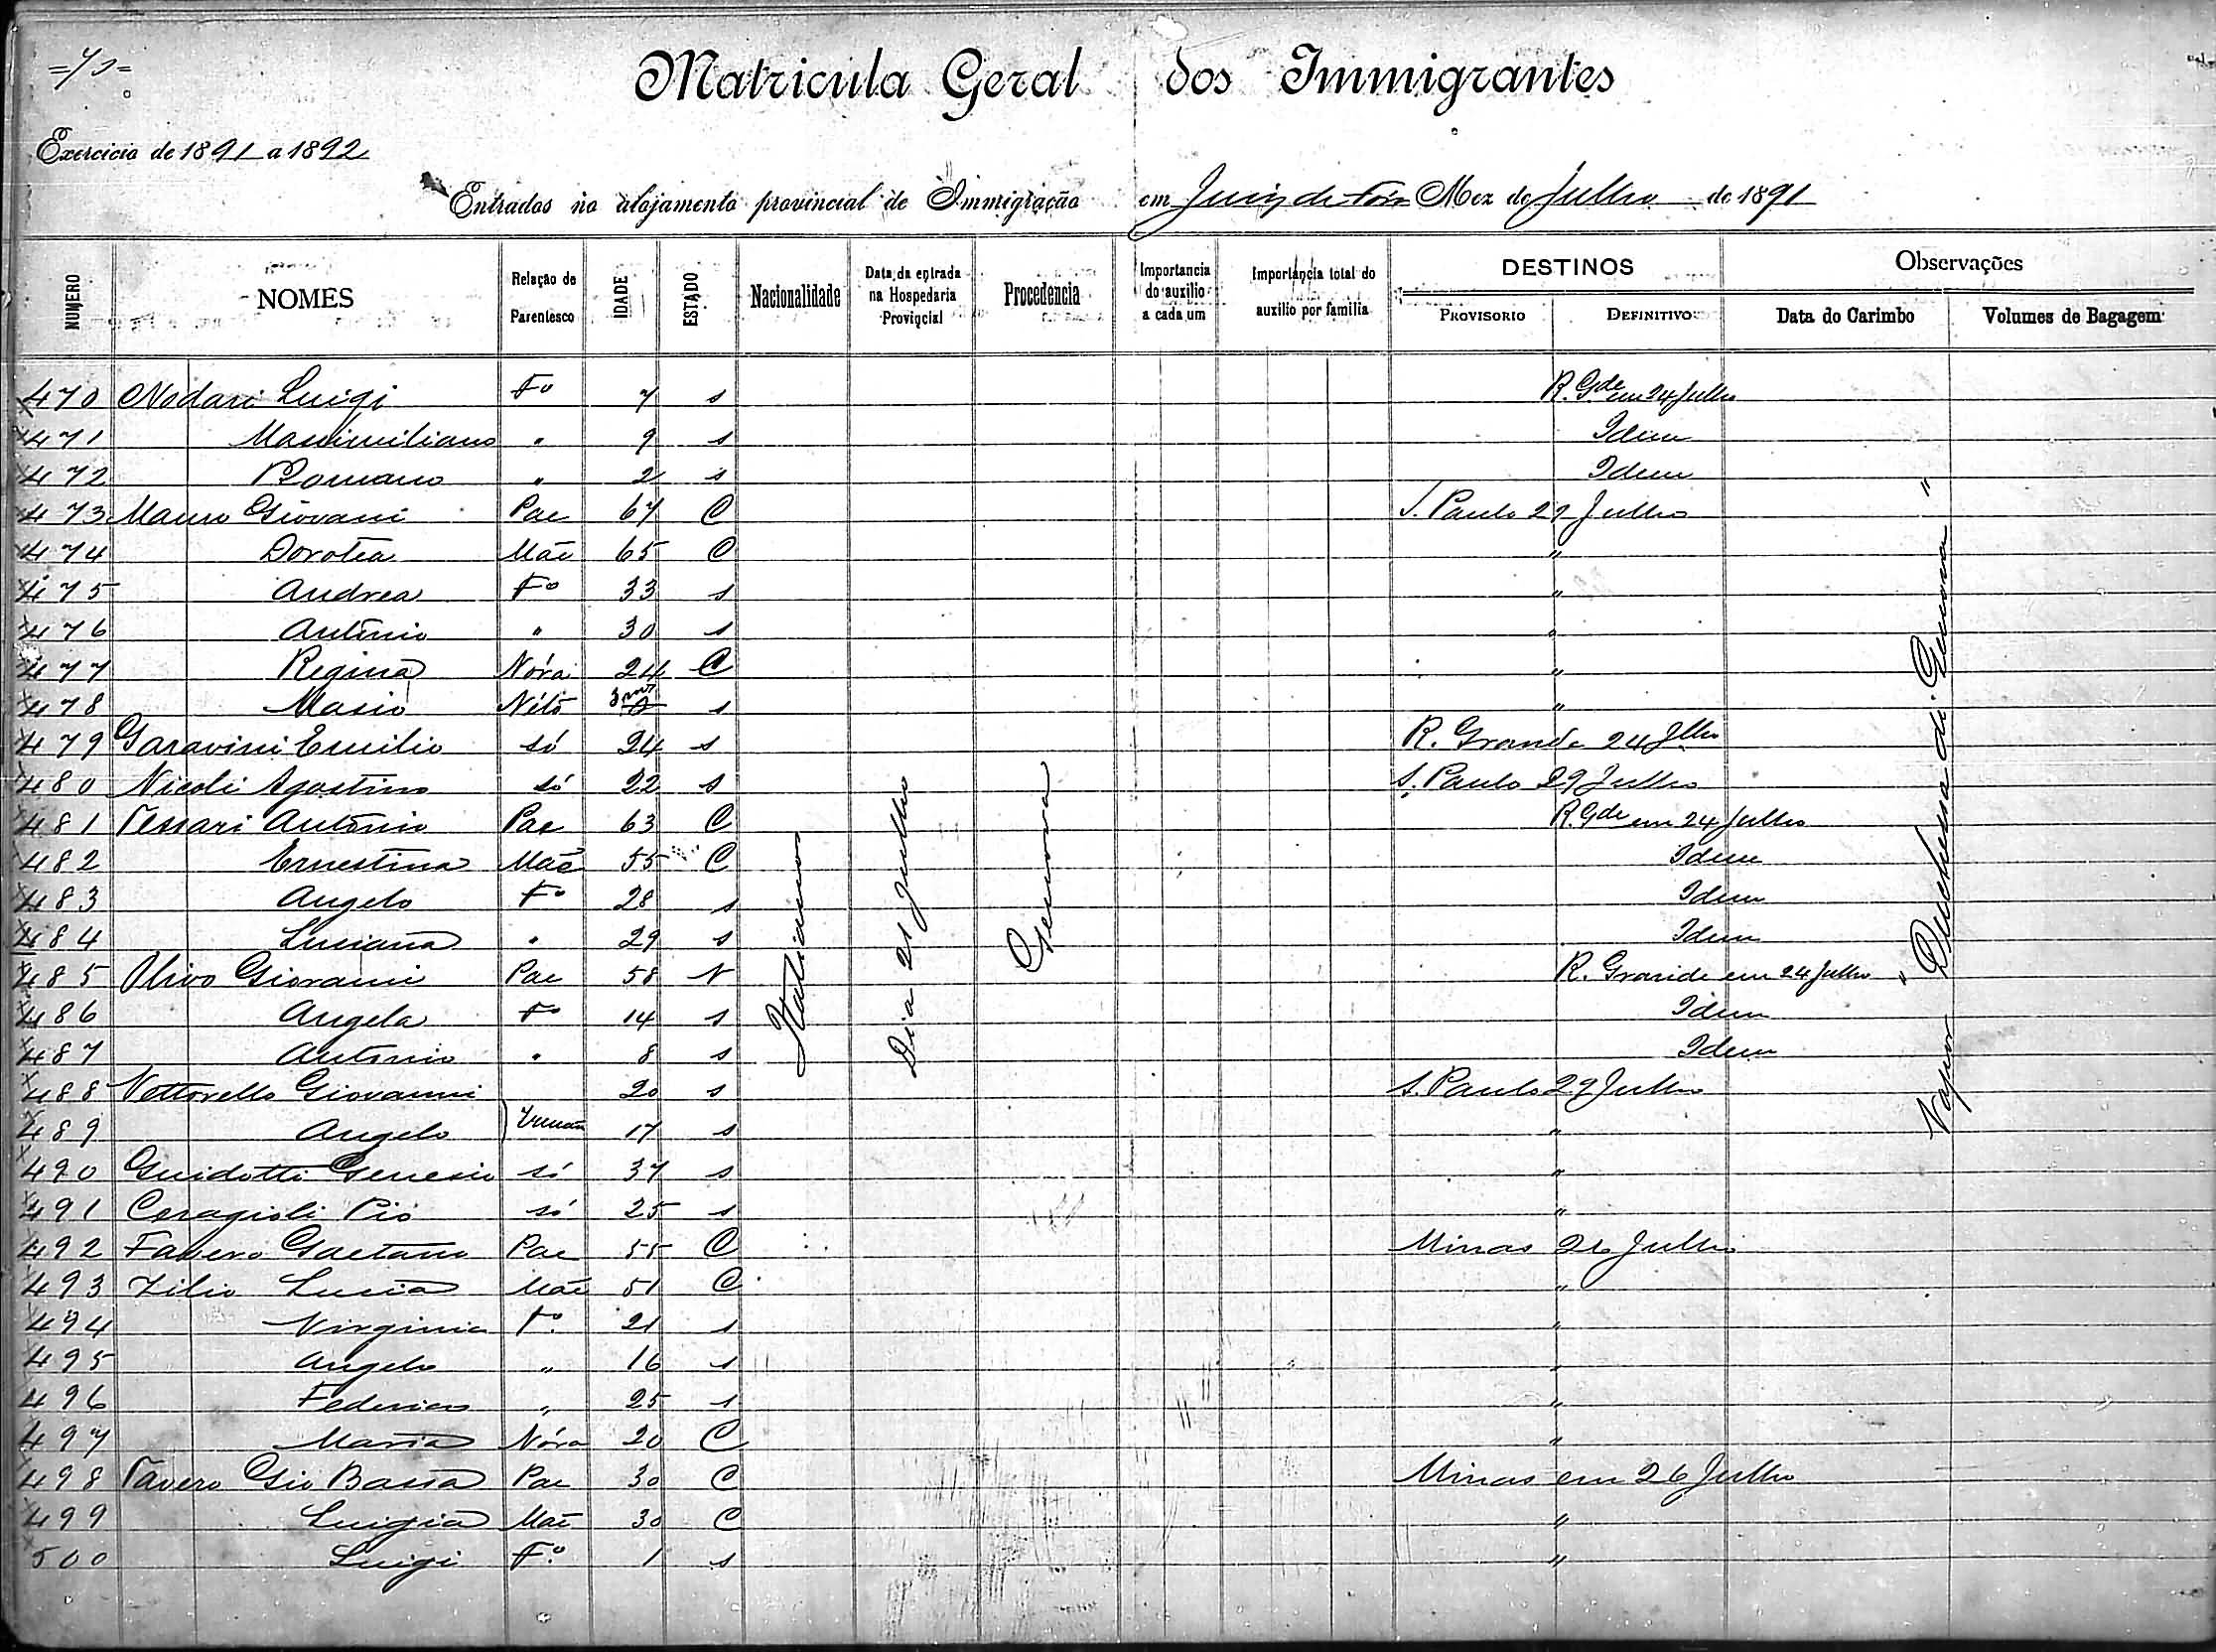 Matricula Geral dos Immigrantes
Exercicio de 1891 a 1892
Entrados no alojamento provincial de Immigração em Juiz de Fóra Mez de Julho de 1891
NUMERO NOMES Relação de Parentesco IDADE ESTADO Nacionalidade Data da entrada na Hospedaria Provincial Procedencia Importancia do auxilio a cada um Importancia total do auxilio por familia DESTINOS PROVISORIO DEFINITIVO Observações Data do Carimbo Volumes de Bagagem
470 Nodari Luigi Fo 7 s R. Gde em 24 Julho
471 Massimiliano " 9 s Idem
472 Romano " 2 s Idem
473 Mauro Giovani Pae 67 C S. Paulo 29 Julho
474 Dorotea Mãe 65 C "
475 Andrea Fo 33 s "
476 Antonio " 30 s "
477 Regina Nóra 24 C "
478 Masio Néto s "
479 Garavini Emilio só 24 s R. Grande 24 Jlho
480 Nicoli Agostino só 22 s S. Paulo 29 Julho
481 Tessari Antonio Pae 63 C R. Gde em 24 Julho
482 Ernestina Mãe 55 C Idem
483 Angelo Fo 28 s Idem
484 Luciana " 29 s Idem
485 Olivo Giovanni Pae 58 V R. Grande em 24 Julho "
486 Angela Fo 14 s Idem
487 Antonio " 8 s Idem
488 Vettorello Giovanni 20 s S. Paulo 29 Julho
489 Angelo Irmão 17 s "
490 Guidotti Genesio só 37 s "
491 Ceragioli Pio só 25 s "
492 Favero Gaetano Pae 55 C Minas 26 Julho
493 Zilio Lucia Mãe 51 C "
494 Virginia Fo 21 s "
495 Angelo " 16 s "
496 Federico " 25 s "
497 Maria Nóra 20 C "
498 Favero Gio Batta Pae 30 C Minas em 26 Julho
499 Luigia Mãe 30 C "
500 Luigi Fo 1 s "
Italianos
Dia 21 Julho
Genova
Vapor "Duchessa di Genova"